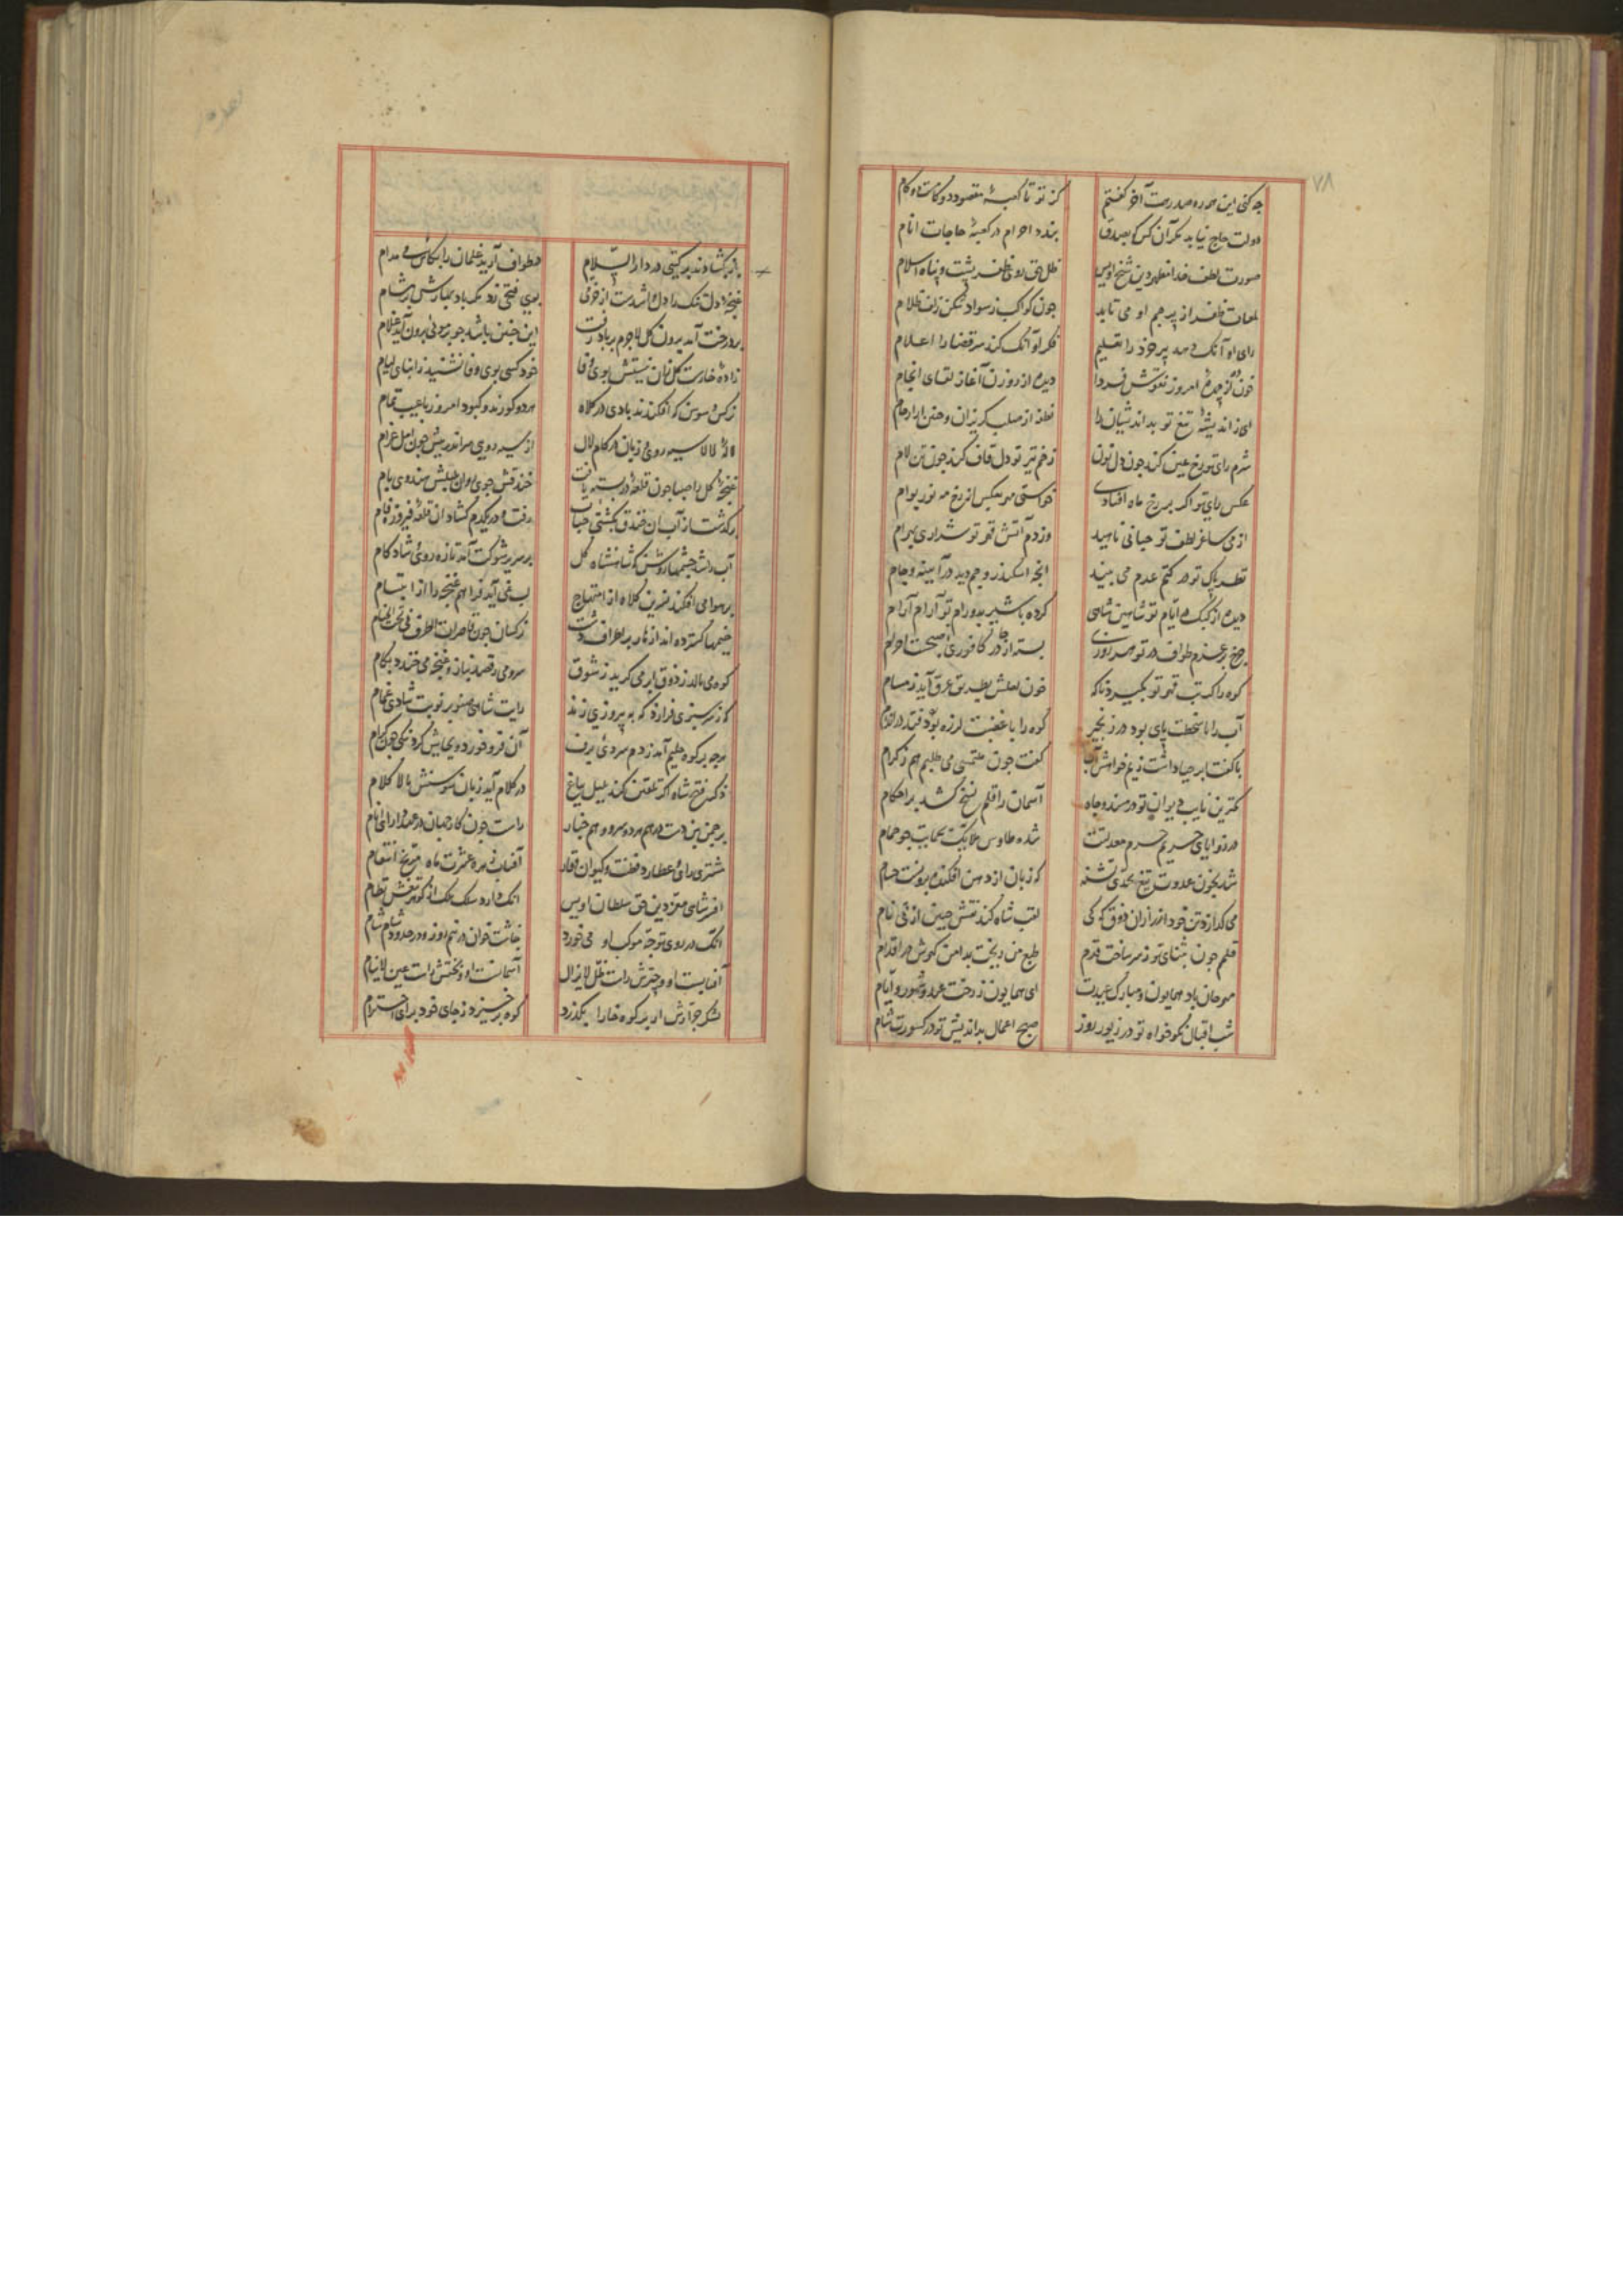 ٧٨
چه کنی این همه ره صد رهت آخر گفتم
کز تو تا کعبهٔ مقصود دو گامست دو گام
دولت حاج نیابد مگر آن کس که بصدق
بندد احرام در کعبهٔ حاجات انام
صورت لطف خدا مظهر دین شیخ اویس
ظل حق روی ظفر پشت و پناه اسلام
لمعات ظفر از پرچم او می تابد
چون کواکب ز سواد شکن زلف ظلام
رای او آنک دهد پیر خرد را تعلیم
فکر او آنک کند سر قضا را اعلام
خوانده از چهرهٔ امروز نقوش فردا
دیده از روزن آغاز لقای انجام
ای ز اندیشهٔ تیغ تو بداندیشان را
نطفه از صلب گریزان و جنین از ارحام
شرم رای تو رخ عین کند چون دل نون
زخم تیر تو دل قاف کند چون تن لام
عکس رای تو اگر بر رخ ماه افتادی
خواستی مهر بعکس از رخ مه نور بوام
از می ساغر لطف تو حبابی ناهید
وز دم آتش قهر تو شراری بهرام
نظر پاک تو در کتم عدم می بیند
آنچه اسکندر و جم دید در آیینه و جام
دیده از کبک در ایام تو شاهین شاهی
کرده با شیر بدوران تو آرام آرام
چرخ بر عزم طواف در تو هر روزی
بسته از چادر کافوری صبحست احرام
کوه را گر تب قهر تو بگیرد ناگه
خون لعلش بطریق عرق آید ز مسام
آب را با سخطت پای بود در زنجیر
کوه را با غضبت لرزه بود در اندام
با کفت ابر حیا داشت زیم خواهش آب
گفت چون ملتمسی می طلبم هم ز کرام
کمترین نایب دیوان تو در مسند و جاه
آسمان را قلم نسخ کشد بر احکام
در زوایای حریم حرم معدلتت
شده طاوس ملایک بحمایت چو حمام
شد بخون عدوت تیغ بحدی تشنه
که زبان از دهن افکنده برونست حسام
می گدازد تن خود را زر از آن ذوق که کی
لقب شاه کند نقش جبین از پی نام
قلم چون بثنای تو ز سر ساخت قدم
طبع من ریخت بدامن گهرش در اقدام
مهرجان باد همایون و مبارک عیدت
ای همایون ز رخت عید و شهور و ایام
شب اقبال نکوخواه تو در زیور روز
صبح اعمال بداندیش تو در کسوت شام
باز بگشادند بر گیتی در دار السلام
در طواف آرید غلمان را بکاس می مدام
غنچه را دل تنگ
بوی فتحی زد
بر درخت آمد برون گل لاجرم بر باد رفت
این چنین باشد چو بی‌وقتی برون آید غلام
زادهٔ خارست گل زان نیستش بوی وفا
خود کسی بوی وفا نشنید ز ابنای لیام
نرگس و سوسن که افکندند بادی در کلاه
هر دو کورند و کبود امروز با عیب تمام
لالهٔ لالا سیه روی و زبان در کام لال
از سیه رویی
غنچهٔ گل را صبا چون قلعهٔ در بسته یافت
خندقش جوی روان بلبلش هندوی بام
برگذشت از آب آن خندق بکشتی حباب
رفت و در یکدم گشاد آن قلعهٔ فیروزه فام
آب را شد چشمها روشن که شاهنشاه گل
بر سریر شوکت آمد تازه روی و شادکام
بر هوا می افکند نسرین کلاه از ابتهاج
لب نمی آید فراهم غنچه را از ابتسام
خیمها گسترده اند ازهار بر اطراف دشت
نرگسان چون قاصرات الطرف فی تحت الخیام
کوه می نالد ز ذوق ابر می گرید ز شوق
سرو می رقصد بناز و غنچه می خندد بکام
گه ز سرسبزی فرازد گه به پیروزی زند
رایت شاهی صنوبر نوبت شادی غمام
هر چه بر کوه حلیم آمد ز دم سردی برف
آن فرو خورد و بجایش کرد نیکی چون کرام
ذکر فتح شاه اگر تلقین کند بلبل بباغ
در کلام آید زبان سوسنش بالا کلام
بر چمن بین دست در هم سرو و هم چنار
راست چون کار جهان در عهد دارای انام
مشتری رای عطارد فطنت و کیوان وقار
آفتاب زهره عشرت ماه مریخ انتقام
افسر شاهی معز دین حق سلطان اویس
آنک دارد سلک ملک از گوهر تیغش نظام
آنک در روی توجه موکب او می خورد
چاشت خوان در نیمروز و در حدود شام شام
آفتابست او و چترش راست ظل لایزال
آسمانست او و بختش راست عین لاینام
لشکر جرارش ار بر کوه خارا بگذرد
کوه برخیزد ز جای خود برای احترام